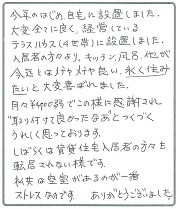 今年のはじめ、自宅に設置しました。
大変全てに良く、経営している
テラスハウス(4世帯)に設置しました。
入居者の方々より、キッチン、風呂、他が
今迄とはメチャメチャ良い、永く住み
たいと大変喜ばれました。
月々¥400弱でこの様に感謝され
"取り付けて良かったなあ"とつくづく
うれしく思っております。
しばらくは賃貸住宅入居者の方々を
転居されない様です。
私共は空室があるのが一番
ストレスなのです。 ありがとうございました。